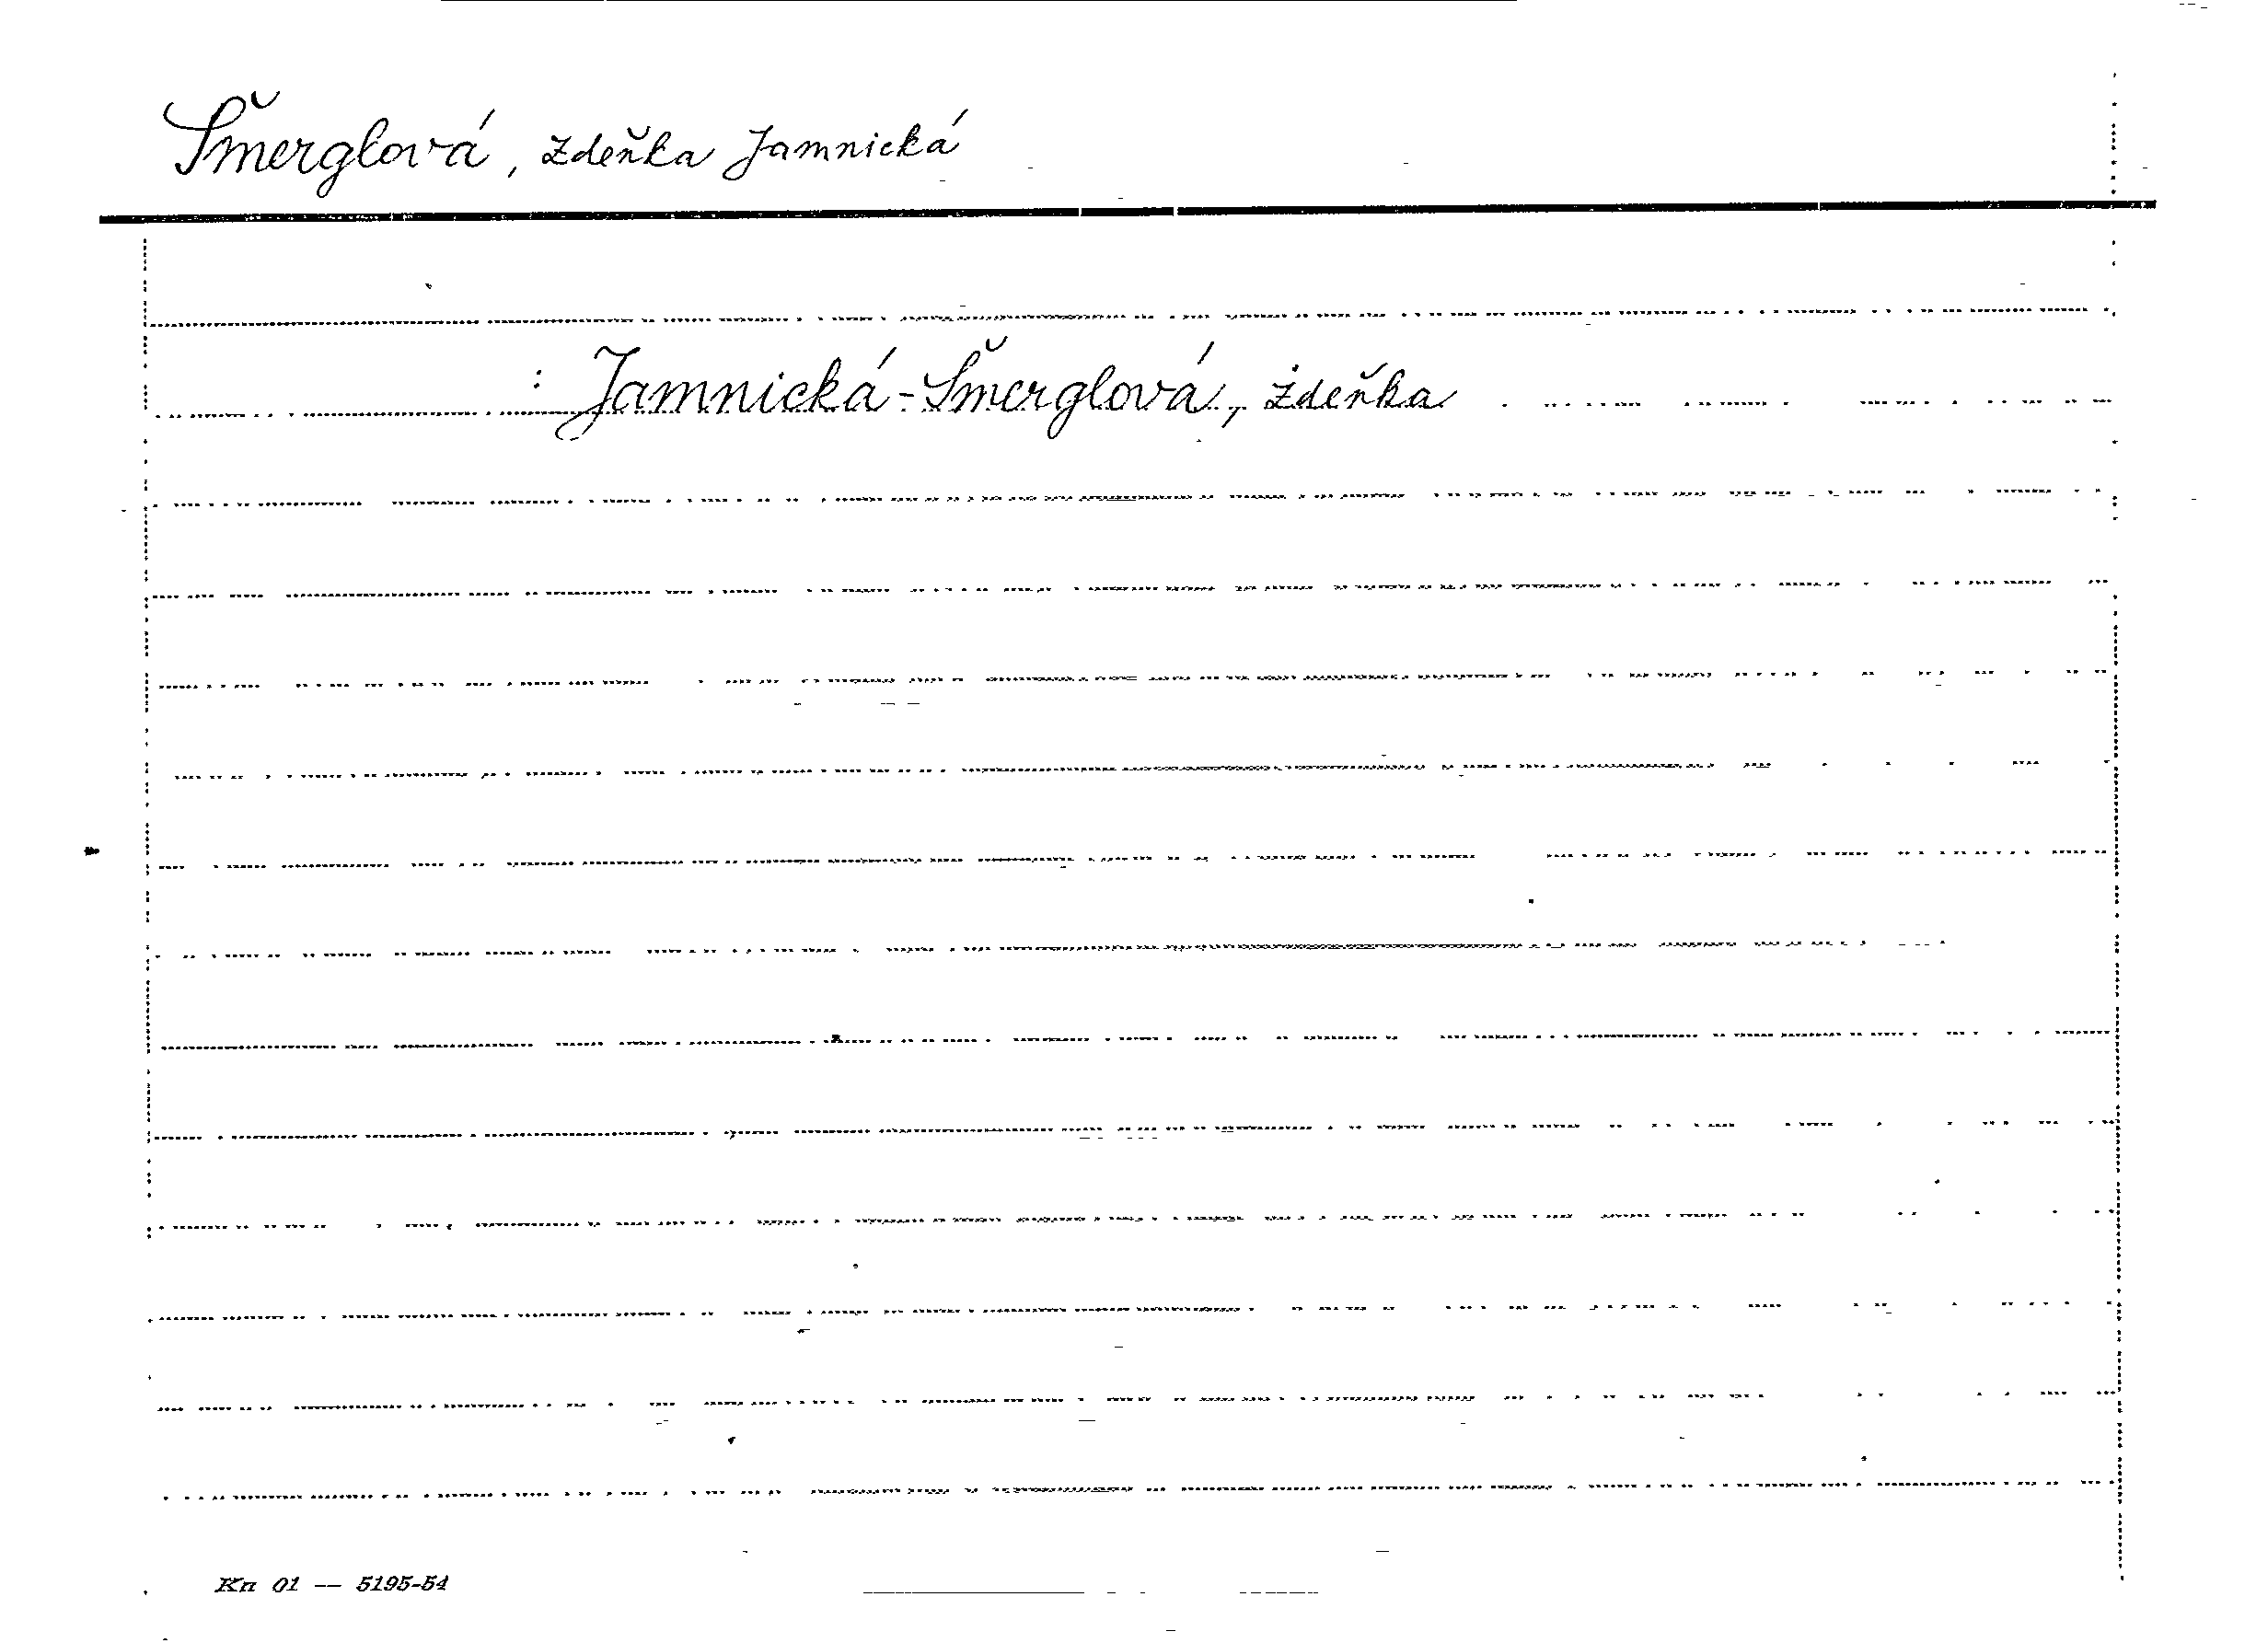 Šmerglová, Zdeňka Jamnická
: Jamnická-Šmerglová, Zdeňka
Kn 01 — 5195-54